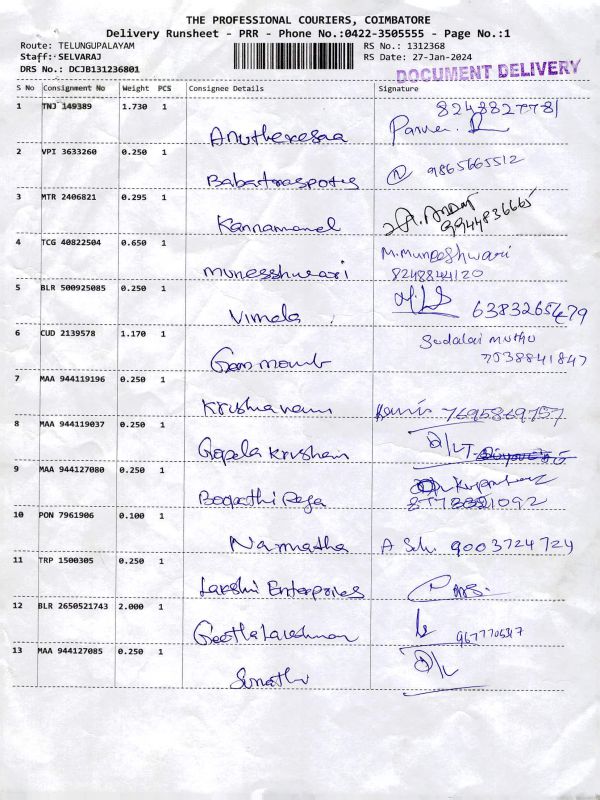 THE PROFESSIONAL COURIERS, COIMBATORE
Delivery Runsheet - PRR - Phone No.:0422-3505555 - Page No.:1
Route: TELUNGUPALAYAM
Staff: SELVARAJ
DRS No.: DCJB131236801
RS No.: 1312368
RS Date: 27-Jan-2024
DOCUMENT DELIVERY
S No Consignment No Weight PCS Consignee Details Signature
1 TNJ 149389 1.730 1 8248827781
2 VPI 3633260 0.250 1 9865665512
3 MTR 2406821 0.295 1 Kannamanel 9944836665
4 TCG 40822504 0.650 1 munesshwari M.Muneeshwari
8248844120
5 BLR 500925085 0.250 1 Vimala 6383265479
6 CUD 2139578 1.170 1 Sudalai muthu
7538841847
7 MAA 944119196 0.250 1 7695869757
8 MAA 944119037 0.250 1 Gopala Krishnan
9 MAA 944127080 0.250 1 Boopathi Raja
10 PON 7961906 0.100 1 Narmatha 9003724724
11 TRP 1500305 0.250 1 Lakshi Enterprises
12 BLR 2650521743 2.000 1 Geetha Lakshman
13 MAA 944127085 0.250 1